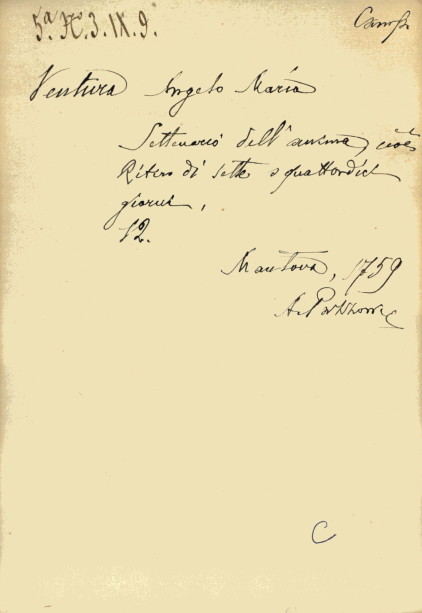 5ª K.3.IX.9.
Camp.
Ventura Angelo Maria
Settenario dell'anima, cioè
Ritiro di sette o quattordici
giorni,
12.
Mantova, 1759
A. Pazzoni
C